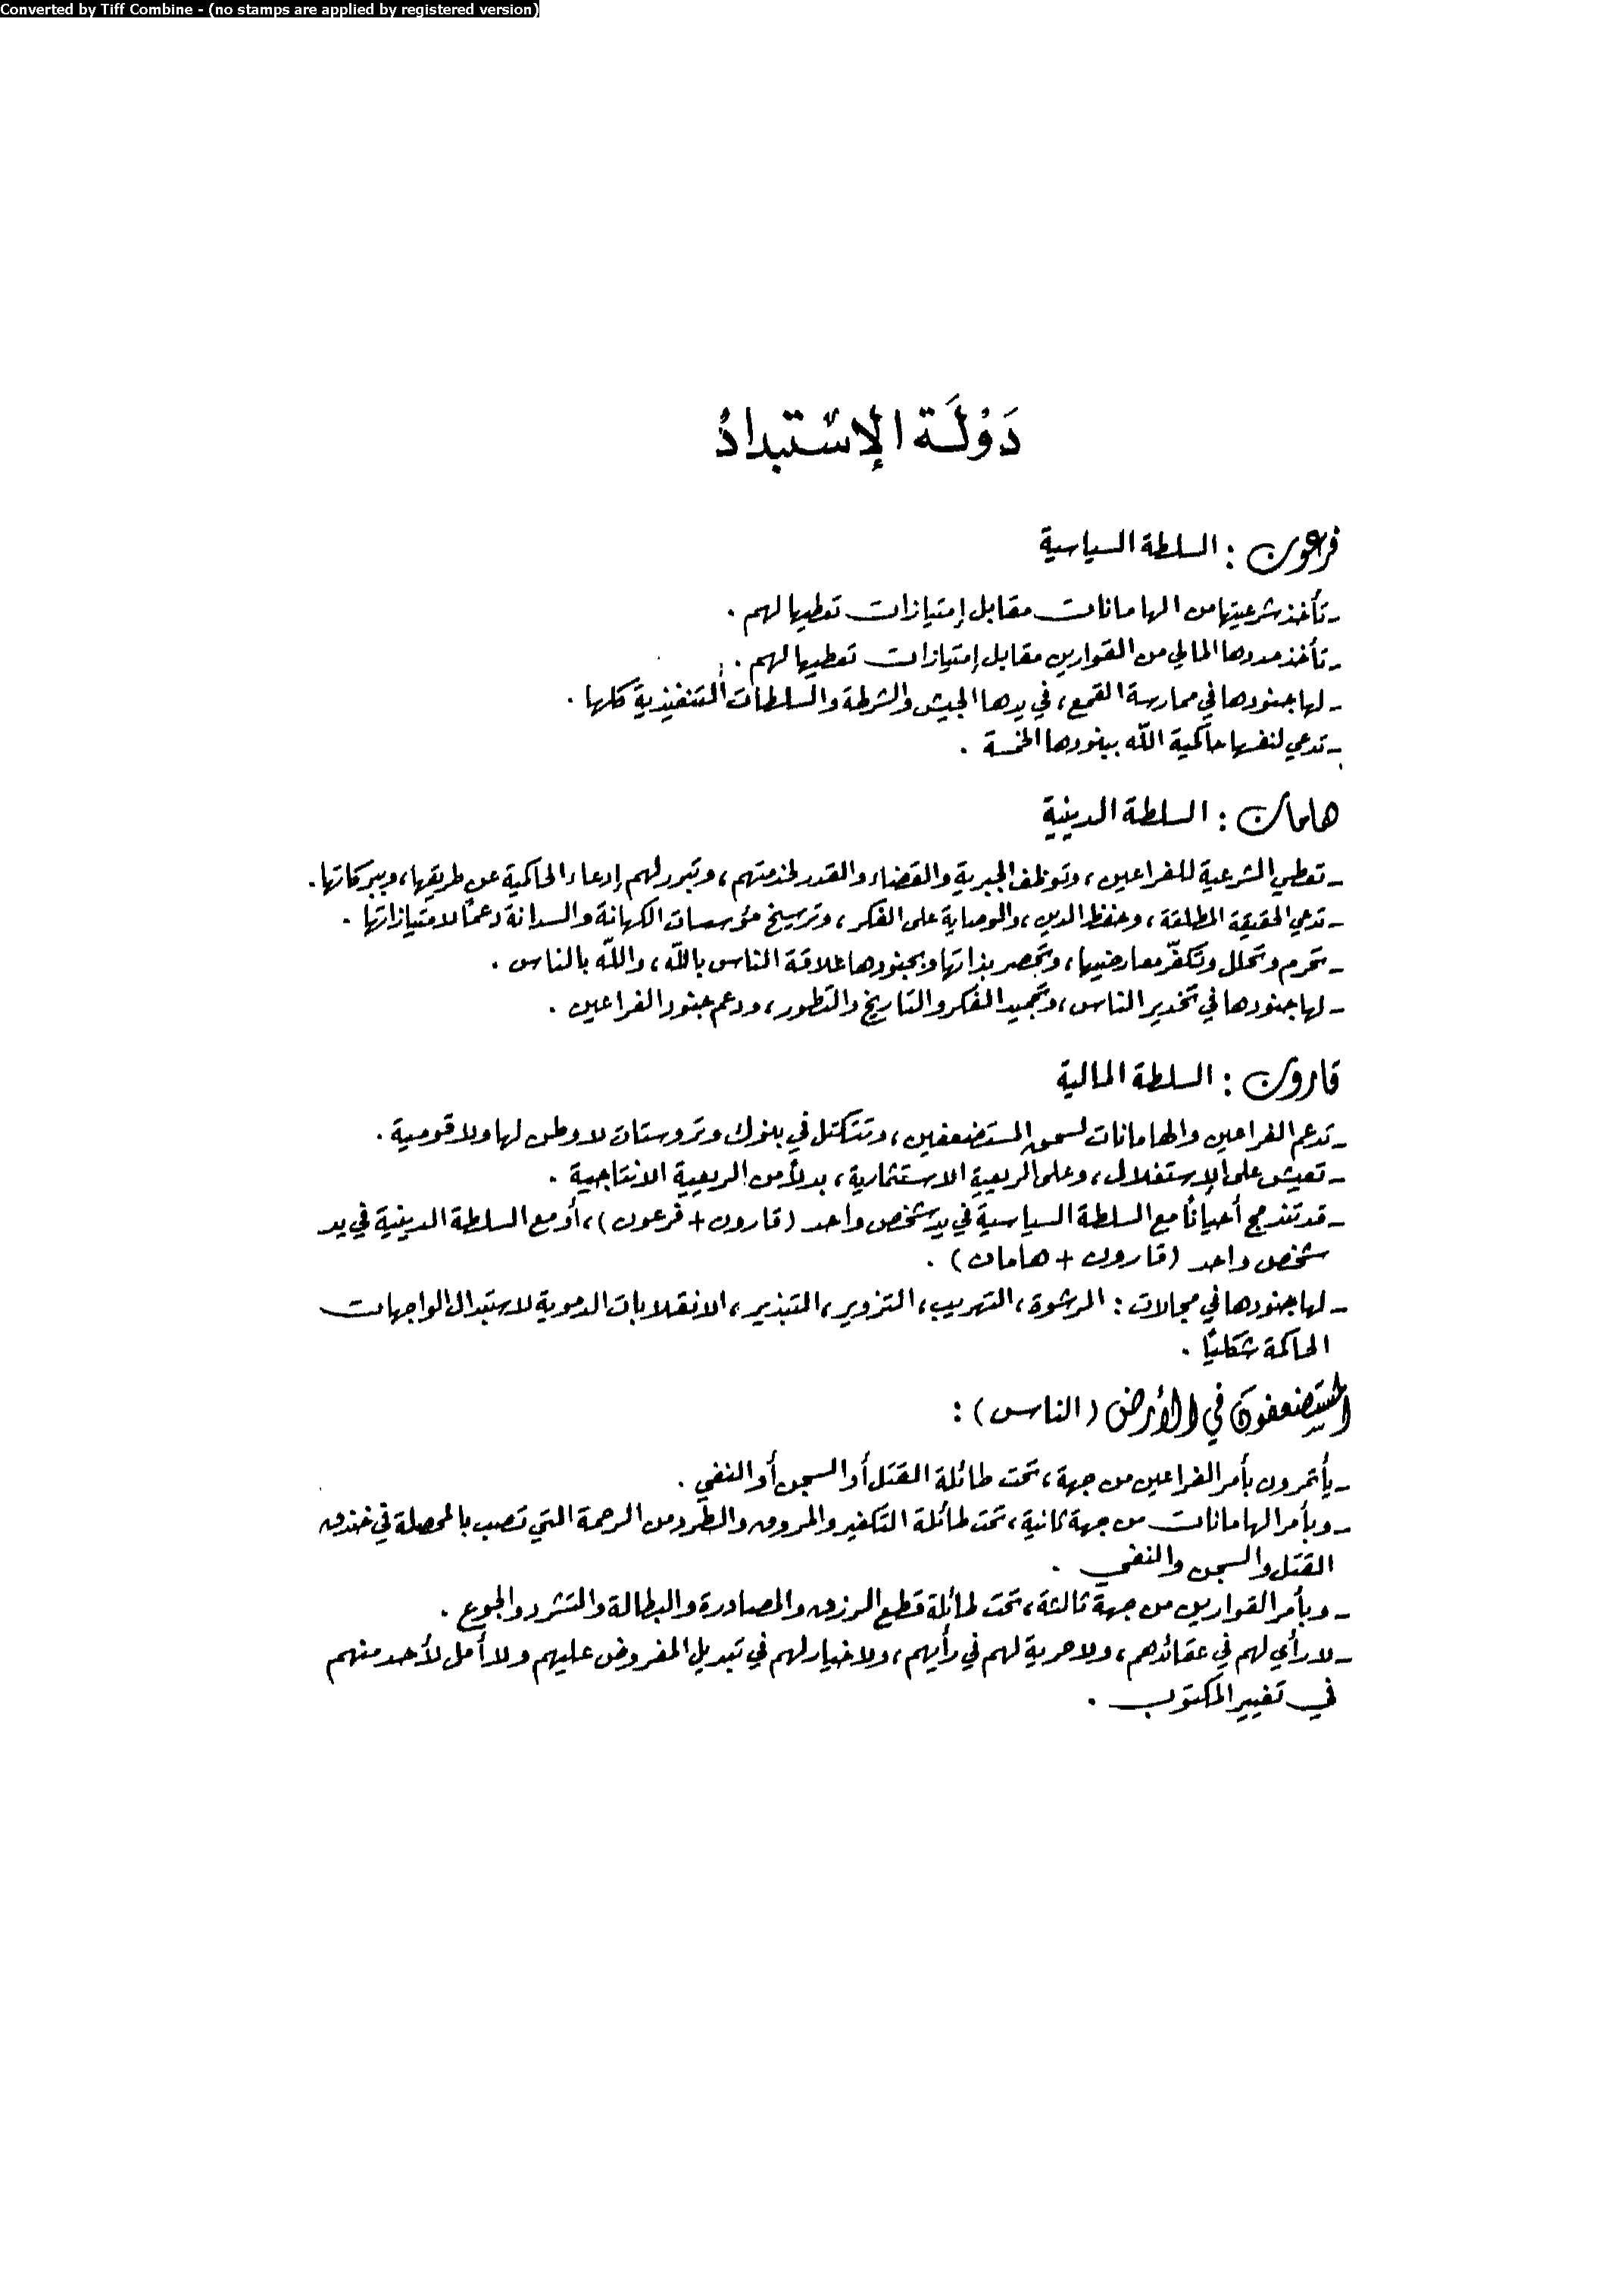 Converted by Tiff Combine - (no stamps are applied by registered version)
دَوْلَة الإسْتبدادْ
فرعون : السلطة السياسية
- تأخذ شرعيتها من الهامانات مقابل إمتيازات تعطيها لهم .
- تأخذ مددها المالي من القوارين مقابل إمتيازات تعطيها لهم .
- لها جنودها في ممارسة القمع ، في يدها الجيش والشرطة والسلطات التنفيذية كلها .
- تدعي لنفسها حاكمية اللّه ببنودها الخمسة .
هامان : السلطة الدينية
- تعطي الشرعية للفراعين ، وتوظف الجبرية والقضاء والقدر لخدمتهم ، وتبرر لهم إدعاء الحاكمية عن طريقها ، وببركاتها .
- تدعي الحقيقة المطلقة ، وحفظ الدين ، والوصاية على الفكر ، وترسيخ مؤسسات الكهانة والسدانة دعماً لامتيازاتها .
- تحرم وتحلل وتكفّر معارضيها ، وتحصر بذاتها وبجنودها علاقة الناس باللّه ، واللّه بالناس .
- لها جنودها في تخدير الناس ، وتجميد الفكر والتاريخ والتطور ، ودعم جنود الفراعين .
قارون : السلطة المالية
- تدعم الفراعين والهامانات لسحق المستضعفين ، وتتكتل في بنوك وتروستات لا وطن لها ولا قومية .
- تعيش على الإستغلال ، وعلى الريعية الاستثمارية ، بدلاً من الريعية الانتاجية .
- قد تندمج أحياناً مع السلطة السياسية في يد شخص واحد (قارون + فرعون) ، أو مع السلطة الدينية في يد
شخص واحد (قارون + هامان) .
- لها جنودها في مجالات : الرشوة ، التهريب ، التزوير ، التبذير ، الانقلابات الدموية لاستبدال الواجهات
الحاكمة شكلياً .
المستضعفون في الأرض (الناس) :
- يأتمرون بأمر الفراعين من جهة ، تحت طائلة القتل أو السجن أو النفي .
- وبأمر الهامانات من جهة ثانية ، تحت طائلة التكفير والمروق والطرد من الرحمة التي تصب بالمحصلة في خندق
القتل والسجن والنفي .
- وبأمر القوارين من جهة ثالثة ، تحت طائلة قطع الرزق والمصادرة والبطالة والتشرد والجوع .
- لا رأي لهم في عقائدهم ، ولا حرية لهم في رأيهم ، ولا خيار لهم في تبديل المفروض عليهم ولا أمل لأحد منهم
في تغيير المكتوب .